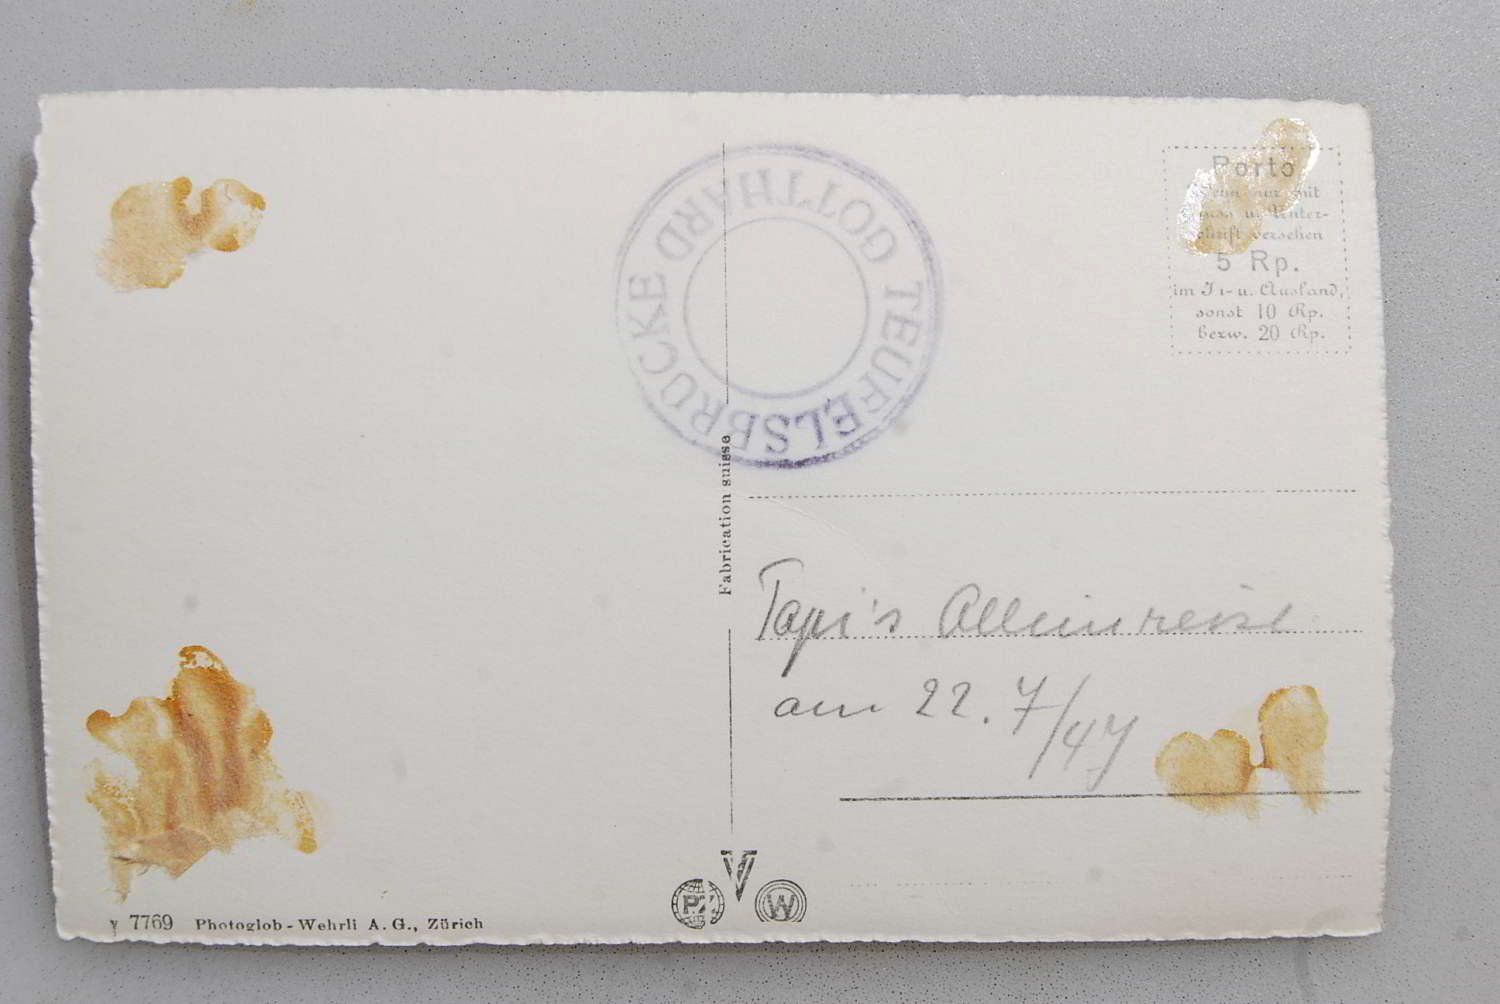 TEUFELSBRÜCKE GOTTHARD
Porto
Wenn nur mit
Gruss u. Unter-
schrift versehen
5 Rp.
im In- u. Ausland,
sonst 10 Rp.
bezw. 20 Rp.
Fabrication suisse
Tapi's Alleinreise
am 22. 7/47
PZ
V
W
y 7769 Photoglob-Wehrli A. G., Zürich